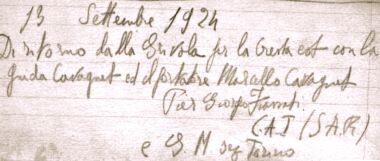 13 Settembre 1924
Di ritorno dalla Grivola per la cresta est con la
guida Cavagnet ed il portatore Marcello Cavagnet
Pier Giorgio Frassati
C.A.I (S.A.R)
e G. M sez Torino